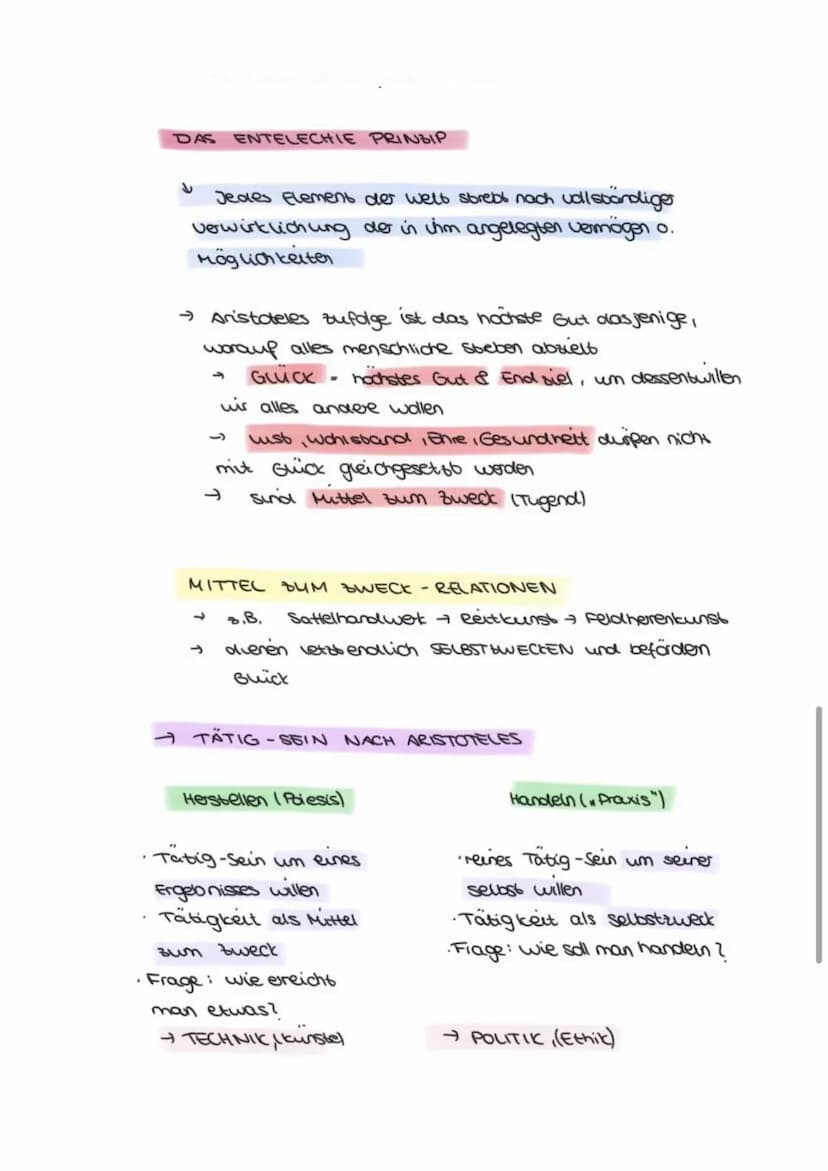 DAS ENTELECHIE PRINZIP
↓ Jedes Element der Welt strebt nach vollständiger
Verwirklichung der in ihm angelegten Vermögen o.
Möglichkeiten
→ Aristoteles zufolge ist das höchste Gut dasjenige,
worauf alles menschliche Streben abzielt
→ GLÜCK = höchstes Gut & Endziel, um dessentwillen
wir alles andere wollen
→ Lust, Wohlstand, Ehre, Gesundheit dürfen nicht
mit Glück gleichgesetzt werden
→ sind Mittel zum Zweck (Tugend)
MITTEL ZUM ZWECK - RELATIONEN
→ z.B. Sattelhandwerk → Reitkunst → Feldherrenkunst
→ dienen letztendlich SELBSTZWECKEN und befördern
Glück
→ TÄTIG-SEIN NACH ARISTOTELES
Herstellen (Poiesis)
· Tätig-Sein um eines
Ergebnisses willen
· Tätigkeit als Mittel
zum Zweck
· Frage: wie erreicht
man etwas?
→ TECHNIK, (Künste)
Handeln („Praxis")
· reines Tätig-Sein um seiner
selbst willen
· Tätigkeit als Selbstzweck
· Frage: wie soll man handeln?
→ POLITIK, (Ethik)